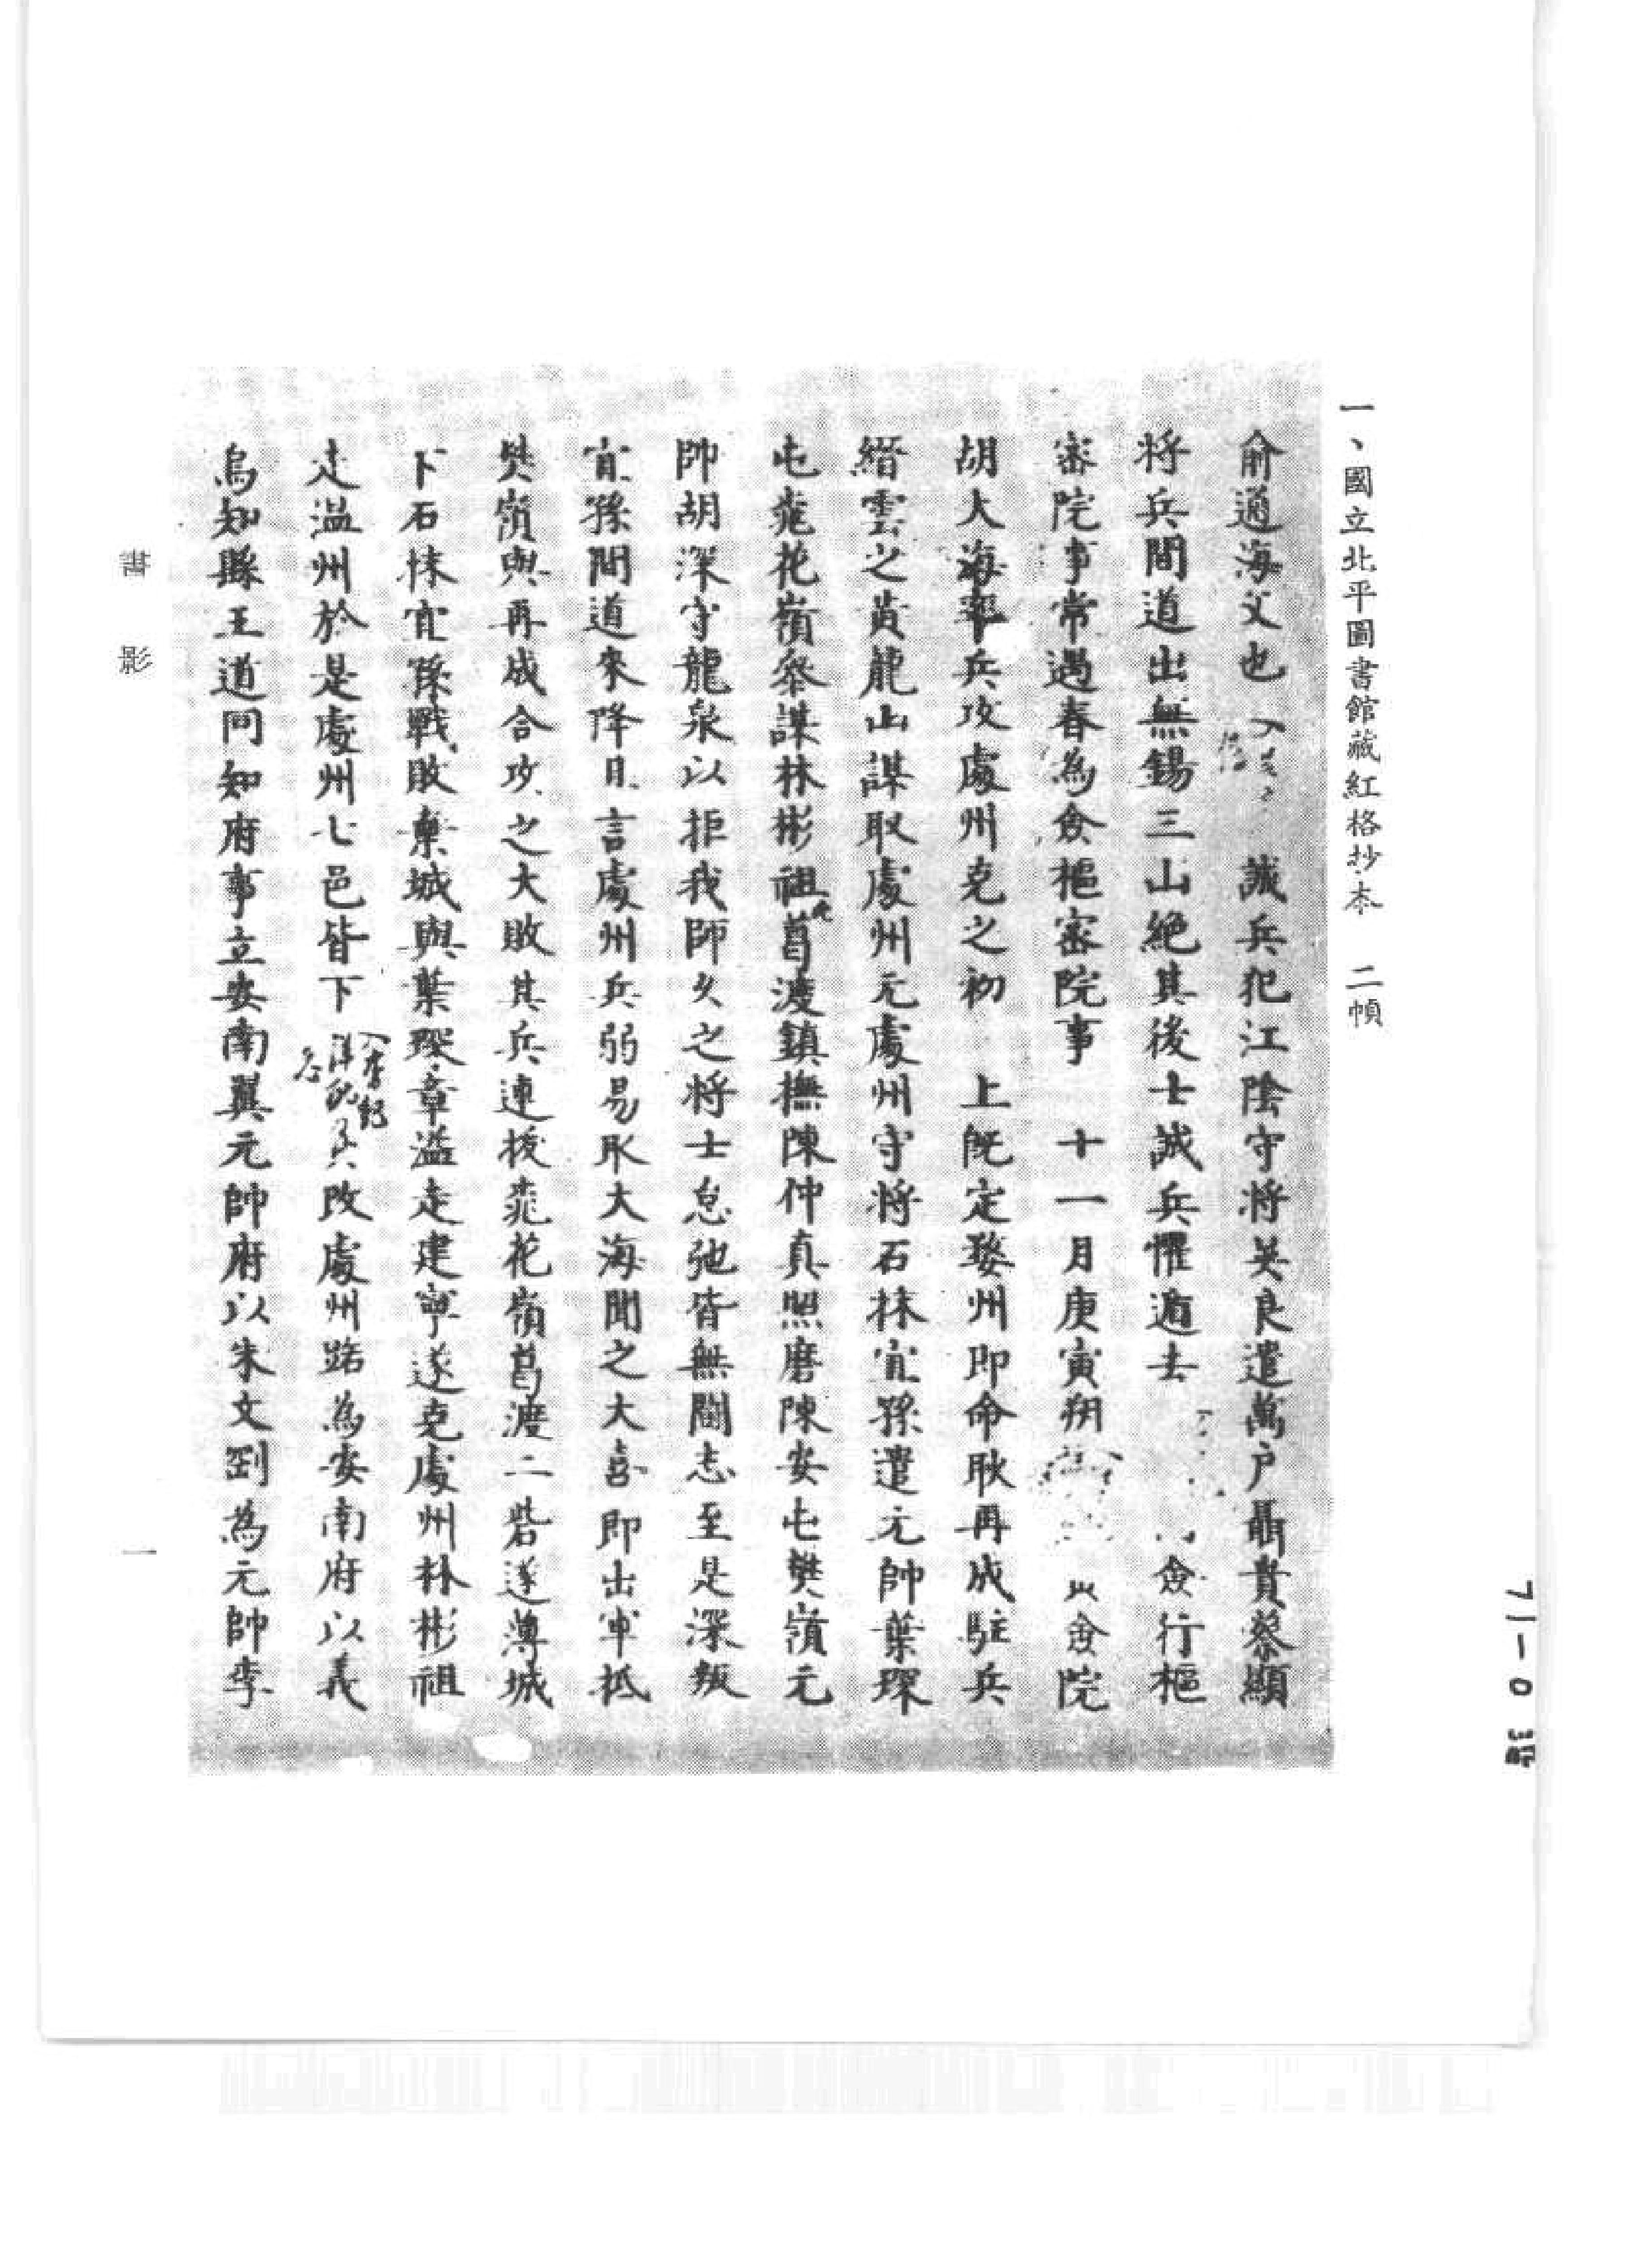 一、國立北平圖書館藏紅格抄本 二幀
俞通海父也 誠兵犯江陰守將吳良遣萬户聶貴蔡顯
將兵間道出無錫三山絕其後士誠兵懼遁去 僉行樞
密院事常遇春為僉樞密院事 十一月庚寅朔 以僉院
胡大海率兵攻處州克之初 上既定婺州即命耿再成駐兵
縉雲之黃龍山謀取處州元處州守將石抹宜孫遣元帥葉琛
屯桃花嶺叅謀林彬祖屯葛渡鎮撫陳仲真照磨陳安屯樊嶺元
帥胡深守龍泉以拒我師乆之將士怠弛皆無鬬志至是深叛
宜孫間道來降且言處州兵弱易取大海聞之大喜即出軍抵
樊嶺與再成合攻之大敗其兵連拔桃花嶺葛渡二砦遂薄城
下石抹宜孫戰敗棄城與葉琛章溢走建寧遂克處州林彬祖
走溫州於是處州七邑皆下 改處州路為安南府以義
烏知縣王道同知府事立安南翼元帥府以朱文剛為元帥李
書影
一
71-0